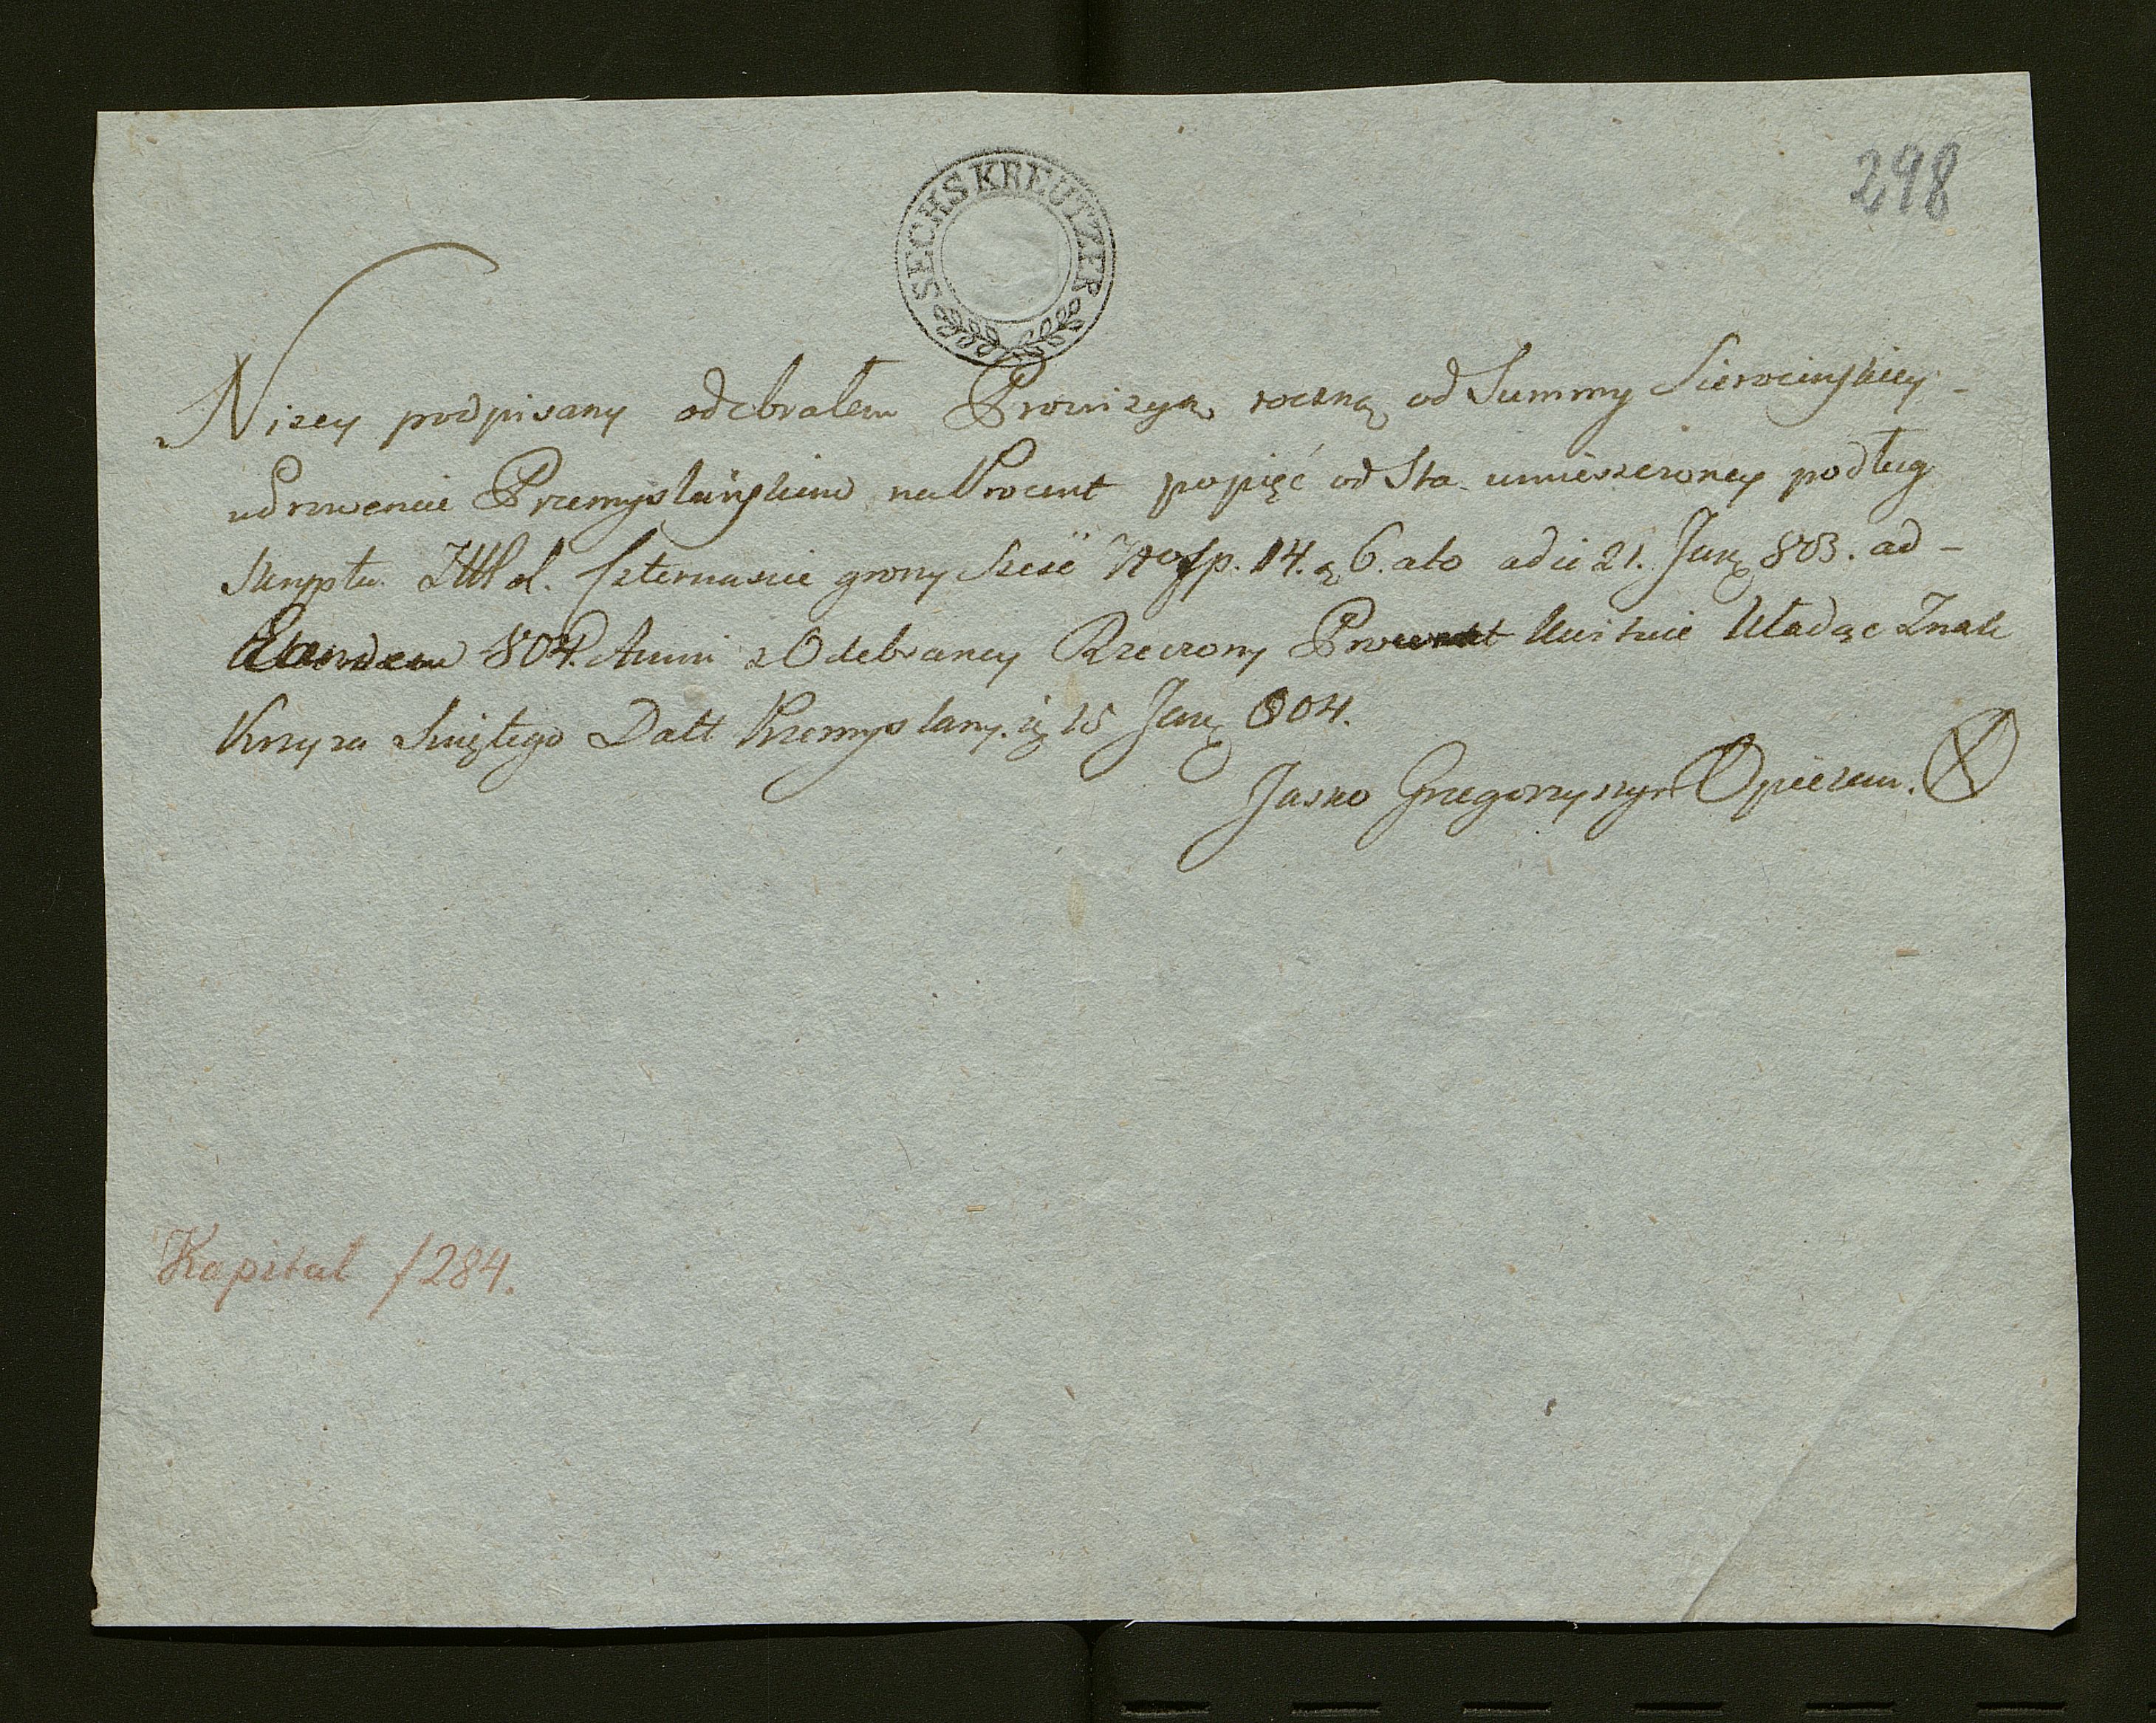 298
SECHS KREUTZER
Nizey podpisany odebrałem Prowizyą roczną od Summy Sierocinskiey
Prowencie Przemyslańskim na Procent po pięć od Sta umieszczoney podług
Skryptu Czternascie groszy Szesc 14. 6. a to a die 21. Jun 803. ad
Eandem 804. Anni z Odebraney Rzeczony Kwituie Kładąc Znak
Krzyza Swiętego Datt Przemyslany 15 804.
Jasko Gregorzyszyn Opiekun.
Kapital f 284.